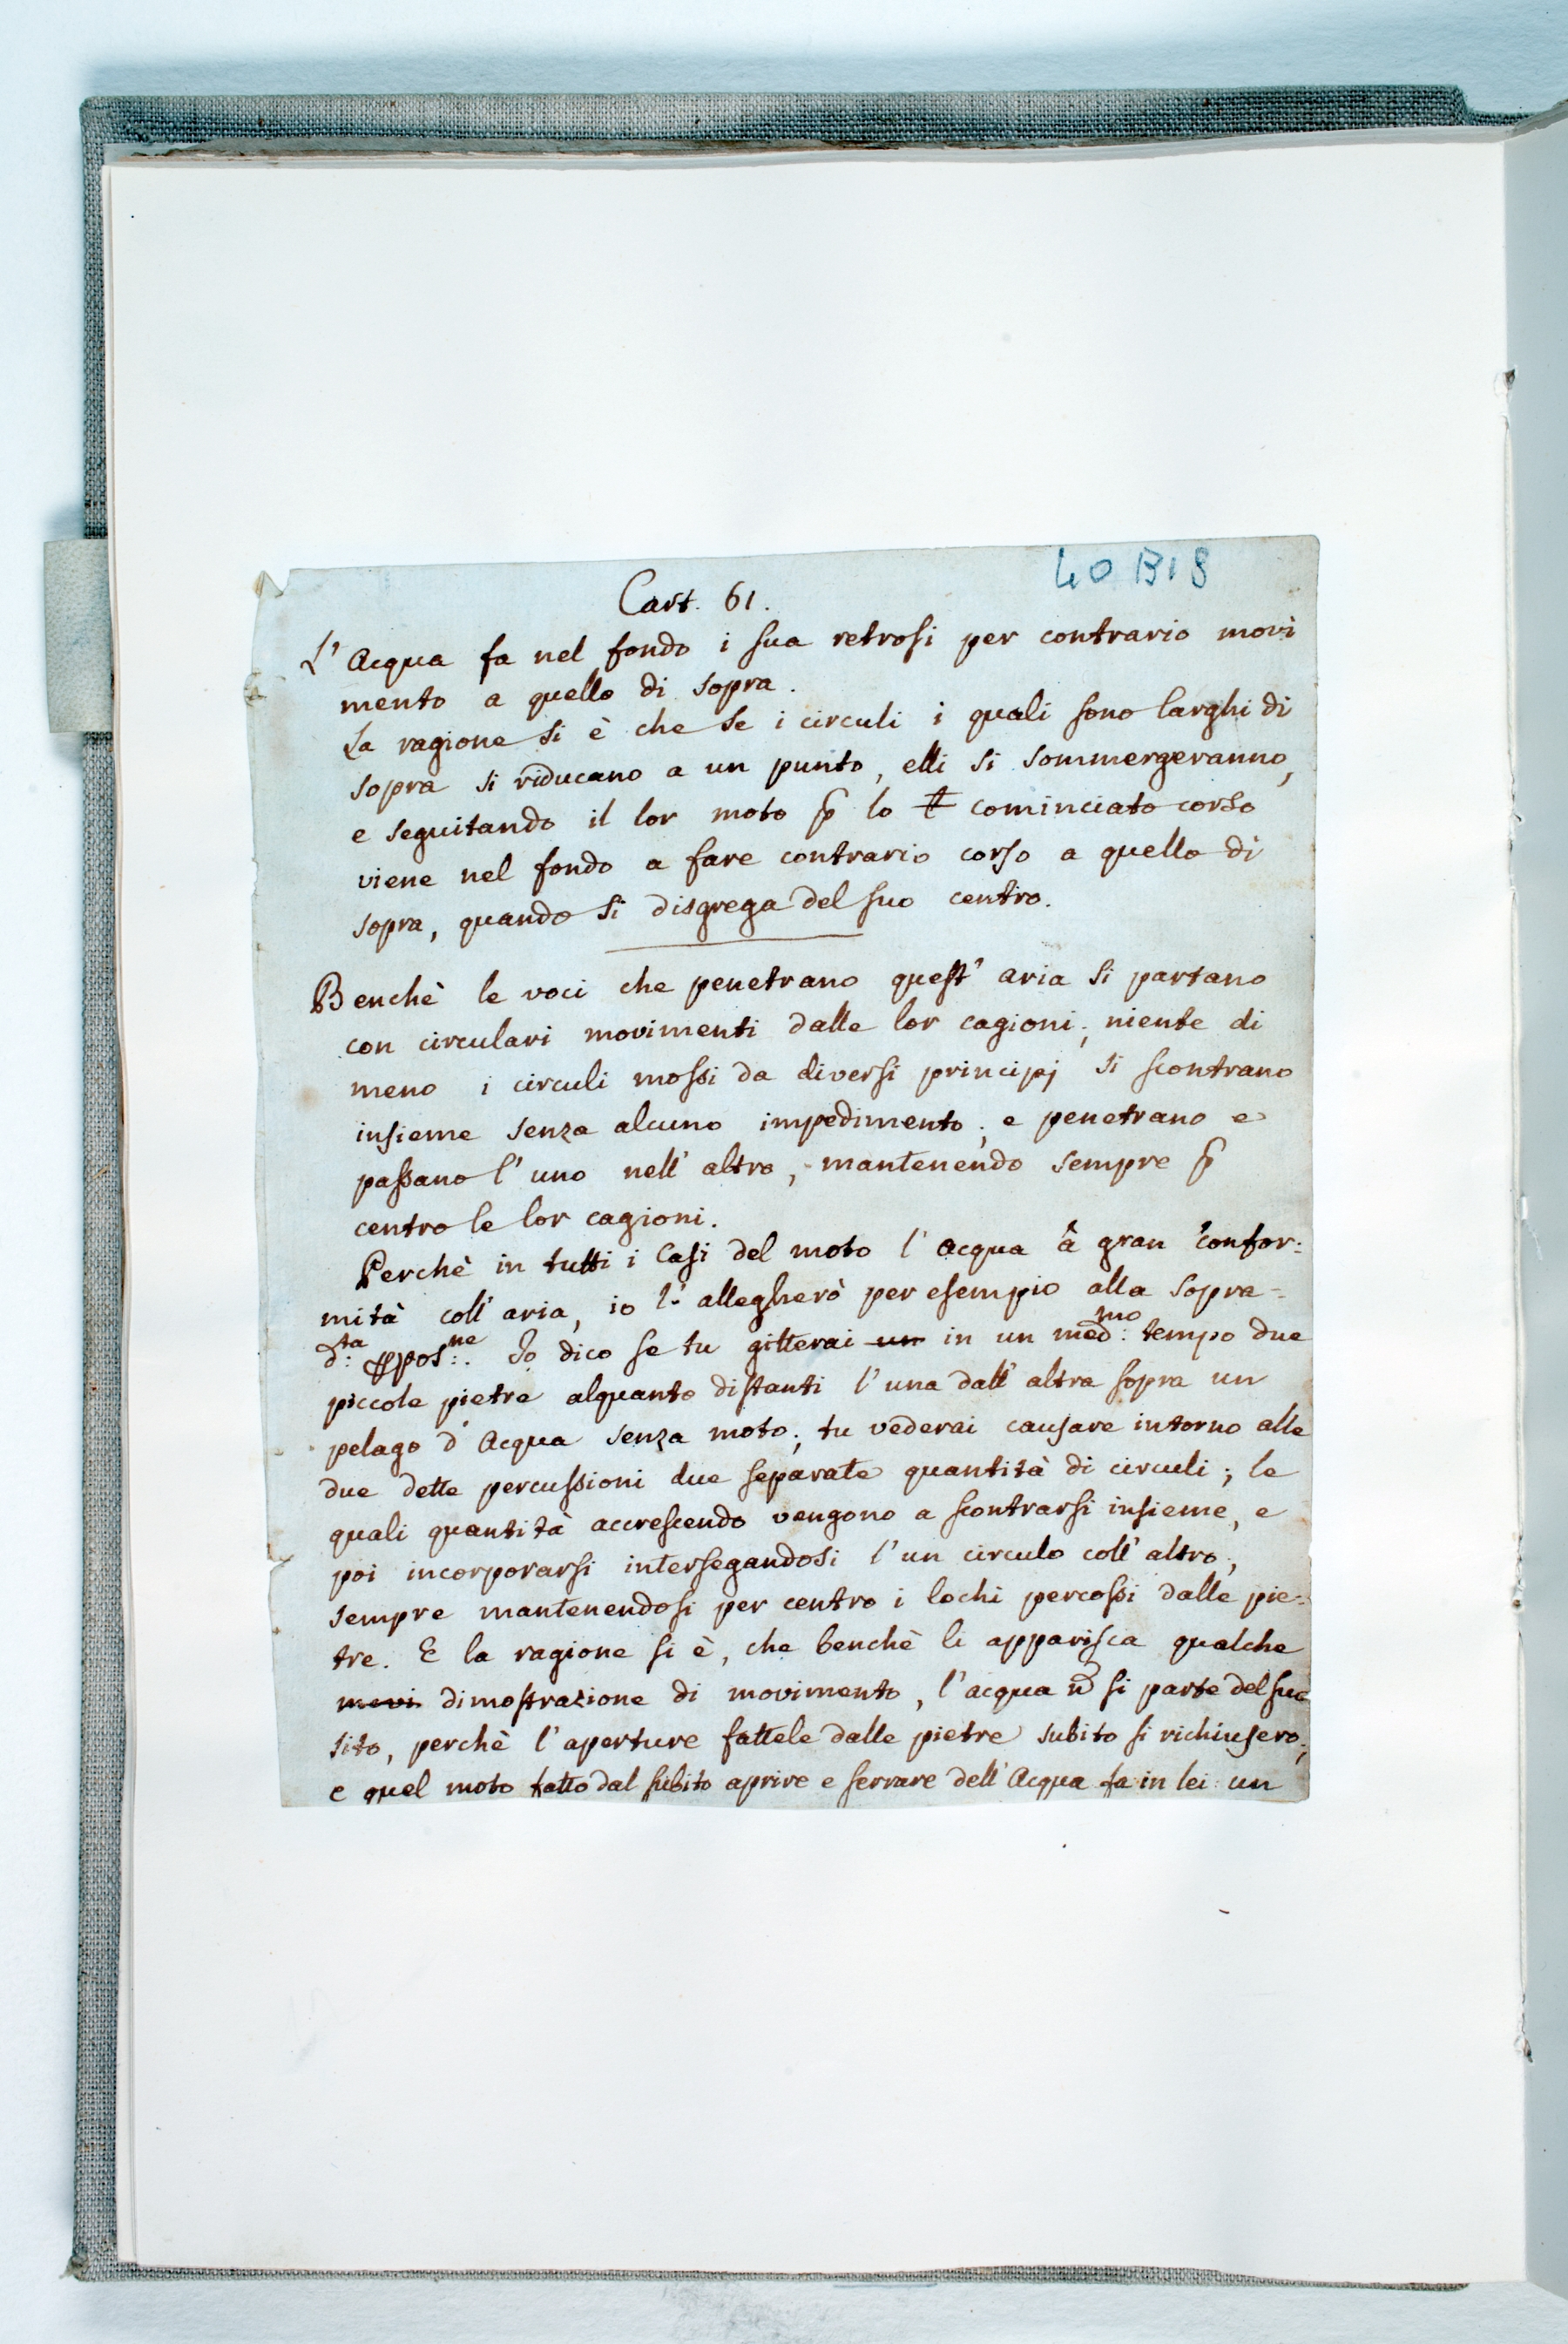 40 BIS
Cart. 61.
L' Acqua fa nel fondo i sua retrosi per contrario movi
mento a quello di sopra.
La ragione si è che se i circuli i quali sono larghi di
sopra si riducano a un punto, elli si sommergeranno,
e seguitando il lor moto ꝑ lo t cominciato corso
viene nel fondo a fare contrario corso a quello di
sopra, quando si disgrega del suo centro.
Benchè le voci che penetrano quest' aria si partano
con circulari movimenti dalle lor cagioni; niente di
meno i circuli mossi da diversi principj si scontrano
insieme senza alcuno impedimento; e penetrano e
passano l' uno nell' altro, mantenendo sempre ꝑ
centro le lor cagioni.
Perchè in tutti i Casi del moto l' acqua à gran confor:
mità coll' aria, io l' allegherò per esempio alla sopra=
d:ta ꝓpos:ne. Io dico se tu gitterai un in un med:mo tempo due
piccole pietre alquanto distanti l' una dall' altra sopra un
pelago d' Acqua senza moto; tu vederai causare intorno alle
due dette percussioni due separate quantità di circuli; le
quali quantità accrescendo vengono a scontrarsi insieme, e
poi incorporarsi intersegandosi l' un circulo coll' altro,
sempre mantenendosi per centro i lochi percossi dalle pie=
tre. E la ragione si è, che benchè li apparisca qualche
movi dimostrazione di movimento, l' acqua ñ si parte del suo
sito, perchè l' aperture fattele dalle pietre subito si richiusero;
e quel moto fatto dal subito aprire e serrare dell' Acqua fa in lei un